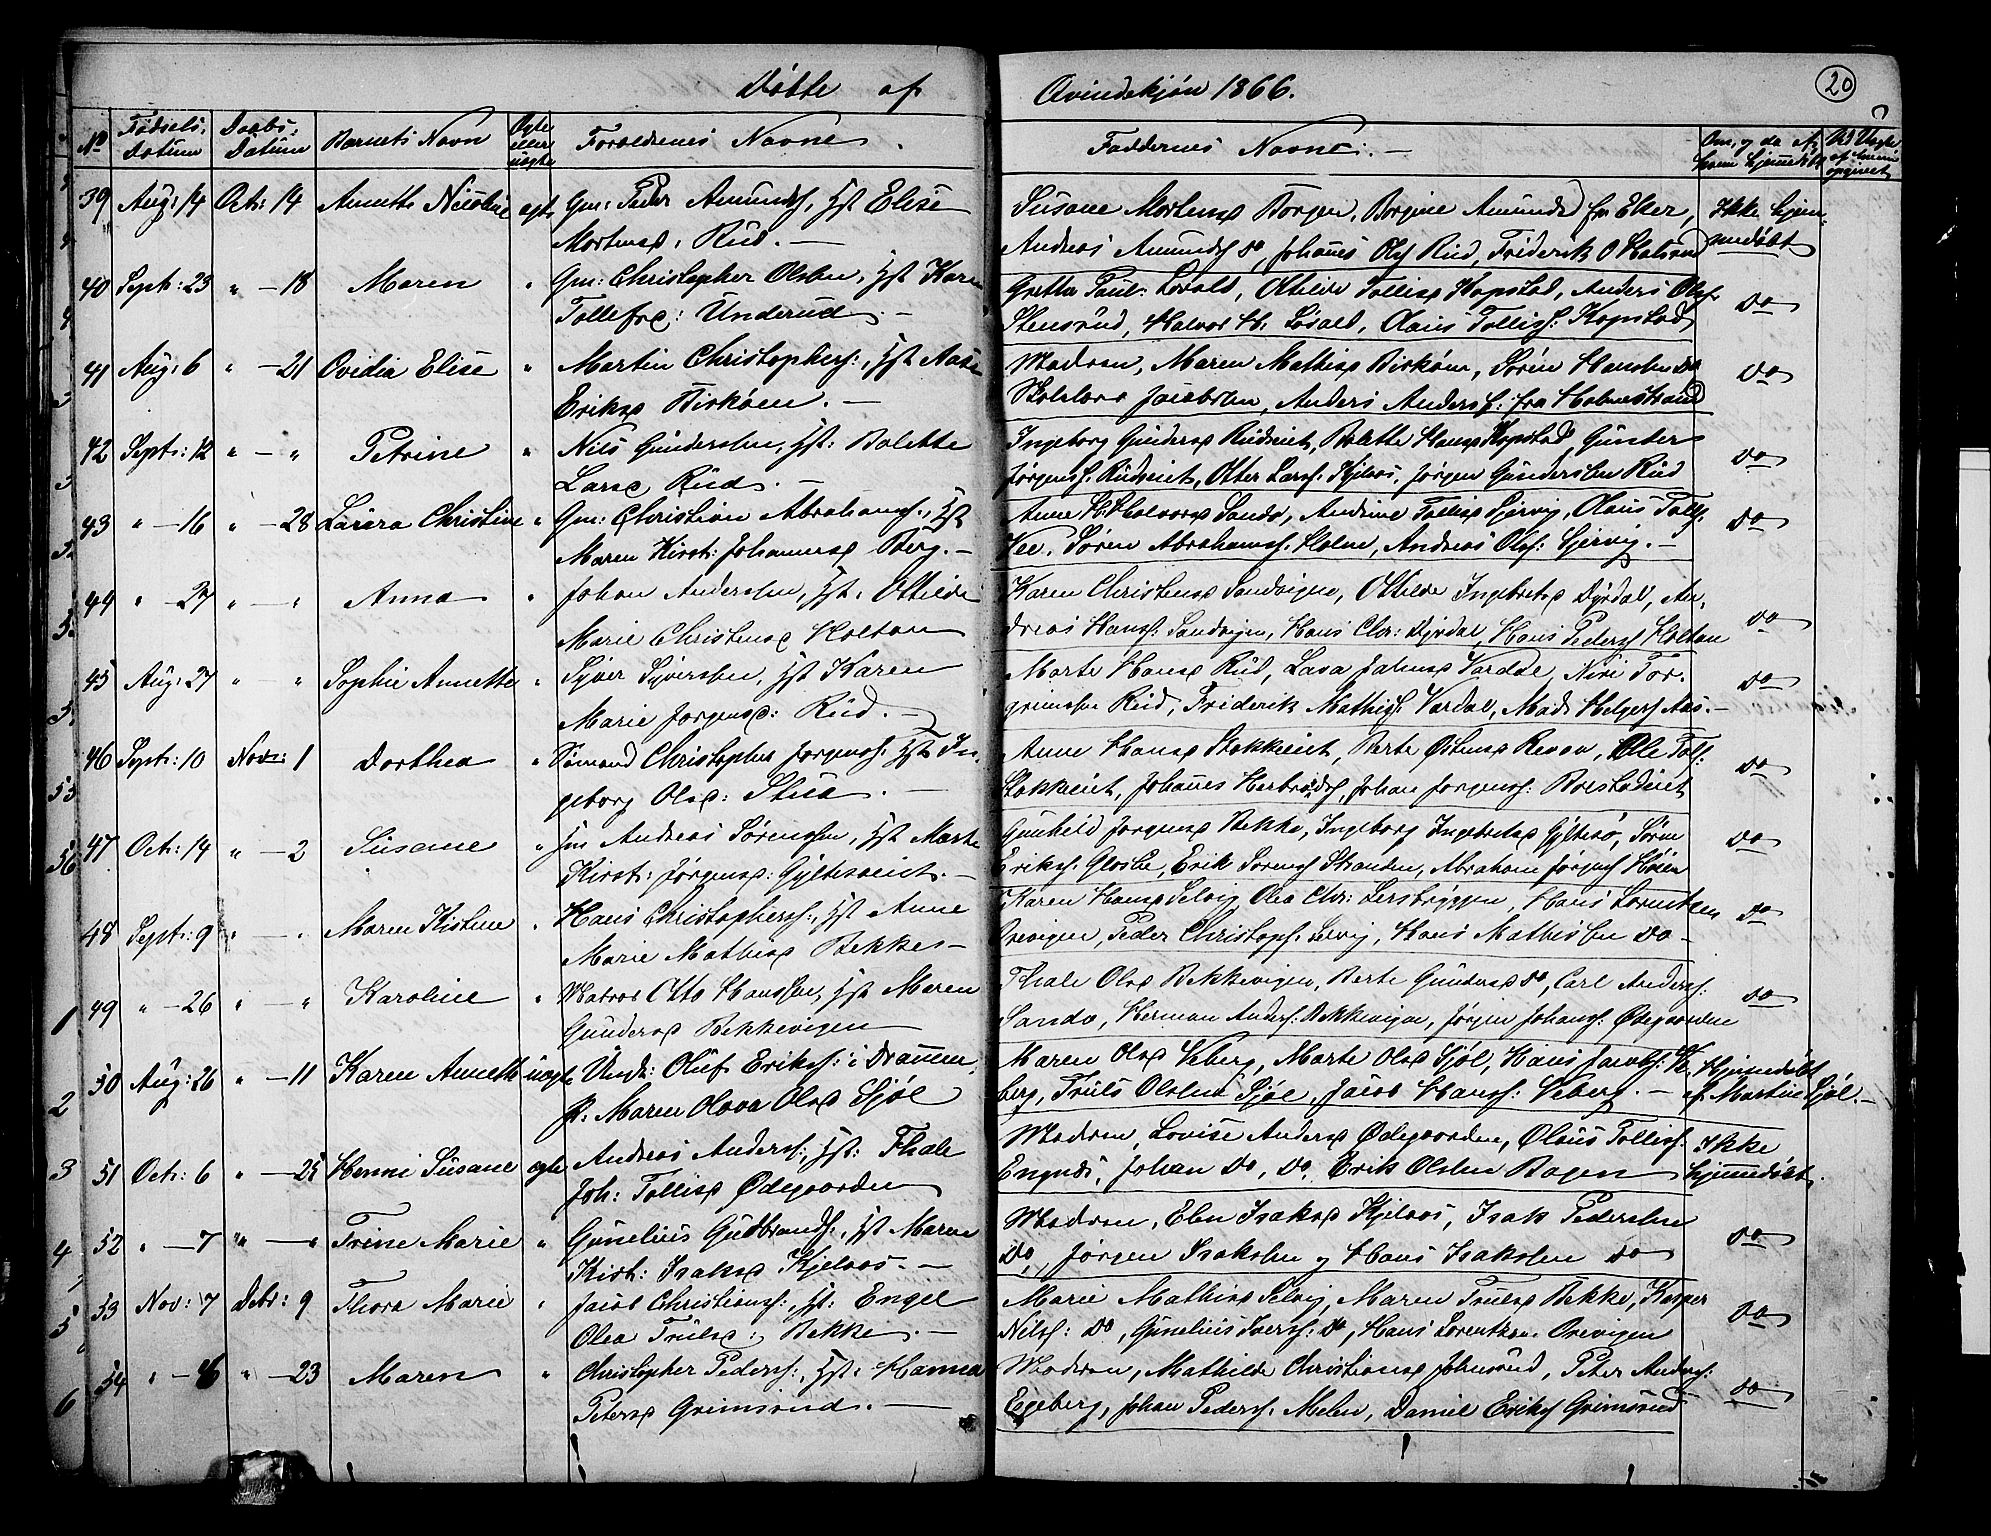 Døbte af Qvindekjøn 1866. 20
No Fødsels Datum Daabs Datum Barnets Navn Ægte eller uægte Forældrenes Navne.
Faddernes Navne: Om, og da af hvem hjemmedøbt
39 Aug: 14 Oct: 14 Anette Nicoline ægte Gm: Peder Amunds, Hst Elise
Mortensd: Rud.
Susane Mortensd Borgen, Borgine Amundsd fra Eker, Ikke hjem-
Andreas Amunds do, Johanes Ols Rud, Friderik O medøbt
40 Sept: 23 " 18 Maren " Gm: Christopher Olsen, Hst Karen
Tollefsd: Underud.
Grethe Paul: Løvald, Ottilde Tollisd Kopstad, Anders Ols
Stensrud, Halvor H. Løvald, Olaus Tolliss: Kopstad do
41 Aug: 6 " 21 Ovidia Elise " Martin Christophers:, Hst Aase
Eriksd Birkøen.
Madren, Maren Mathisd Birkøen, Søren Hansen do
Skolelærer Jacobsen, Anders Anders: fra Holmestrand do
42 Sept: 12 " " Petrine " Nils Gundersen, Hst: Bolette
Larsd Rud.
Ingeborg Gundersd Rudseiet, Bolette Hansd Kopstad Gunder
Jørgens: Rudseiet, Otter Larss: Kjelaas, Jørgen Gundersen Rud do
43 " 16 " 28 Laura Christine " Gm: Christian Abrahams:, Hst
Maren Kirst: Johannesd Berg.
Anne H. Halvorsd Sando, Andrine Tollisd Sjervig, Olaus Tolls:
Vee, Søren Abrahams: Holm, Andreas Ols: Sjervig. do
44 " 27 " " Anna " Johan Andersen, Hst: Ottilde
Marie Christensd Holtan
Karen Christensd Sandvigen, Ottilde Ingebretsd Dyrdal, An-
dreas Hans: Sandvigen, Hans Chr: Dyrdal, Hans Peders Holtan do
45 Aug: 27 " " Sophie Annette " Syver Syversen, Hst Karen
Marie Jørgensd: Rud.
Marte Hansd Rud, Lava Jahnsd Vardal, Niri Tor-
grimsen Rud, Friderik Mathis: Vardal, Mads Helgers Aas. do
46 Sept: 10 Nov: 1 Dorthea " Sømand Christopher Jørgens: Hst In-
geborg Olsd: Stua.
Anne Hansd Stokkeiet, Berte Ostensd Revov, Ole Tol:
Stokkeiet, Johanes Herbrands, Johan Jørgens: Borstadeiet do
47 Oct: 14 " 2 Susane " Gm Andreas Sørensen, Hst Marte
Kirst: Jørgensd: Gyltesøeiet.
Gunhild Jørgensd Bekke, Ingeborg Ingebretsd Gyltesø, Søren
Eriks: Gloslie, Erik Sørens: Stranden, Abraham Jørgens Høien do
48 Sept: 9 " " Maren Kistine " Hans Christophers:, Hst Anne
Marie Mathisd Bekke
Karen Hansd Selvig, Olea Chr: Lersbryggen, Hans Lorentzen
Orevigen, Peder Christophs: Selvig, Hans Mathisen do do
49 " 26 " " Karoline " Matros Otto Hanssen, Hst Maren
Gundersd Bekkevigen
Thale Olsd Bekkevigen, Berte Gundersd do, Carl Anders:
Sando, Herman Anders: Bekkevigen, Jørgen Johans: Ødegaarden do
50 Aug: 26 " 11 Karen Annette uægte Ungk: Oluf Eriks: i Drammen,
P: Maren Olava Olsd Sjøl
Maren Olsd Veberg, Marte Olsd Sjøl, Hans Jacobs: Ve- Hjemedøbt
berg, Truls Olsen Sjøl, Jacob Hans: Veberg. af Martin Sjøl.
51 Oct: 6 " 25 Henni Susane ægte Andreas Anders:, Hst: Thale
Joh: Tollisd Ødegaarden
Madren, Lovise Andersd Ødegaarden, Olaus Tollis: Ikke
Engnæs, Johan do, do, Erik Olsen Bogen hjemmedøbt.
52 " 7 " " Trine Marie " Gunelius Gudbrands:, Hst Maren
Kirst: Isaksd Kjelaas.
Madren, Elen Isaksd Kjelaas, Isak Pedersen
do, Jørgen Isaksen og Hans Isaksen do do
53 Nov: 7 Debr: 9 Thora Marie " Jacob Christians:, Hst: Engel
Olea Trulsd: Bekke.
Marie Mathisd Selvig, Maren Trulsd Bekke, Kasper
Nils: do, Gunelius Ivers: do, Hans Lorentzen Orevigen do
54 " 6 " 23 Maren " Christopher Peders:, Hst: Hanna
Petersd Grimsrud.
Madren, Mathilde Christiansd Johnsrud, Peter Anders:
Egeberg, Johan Peders: Melen, Daniel Eriks Grimsrud do